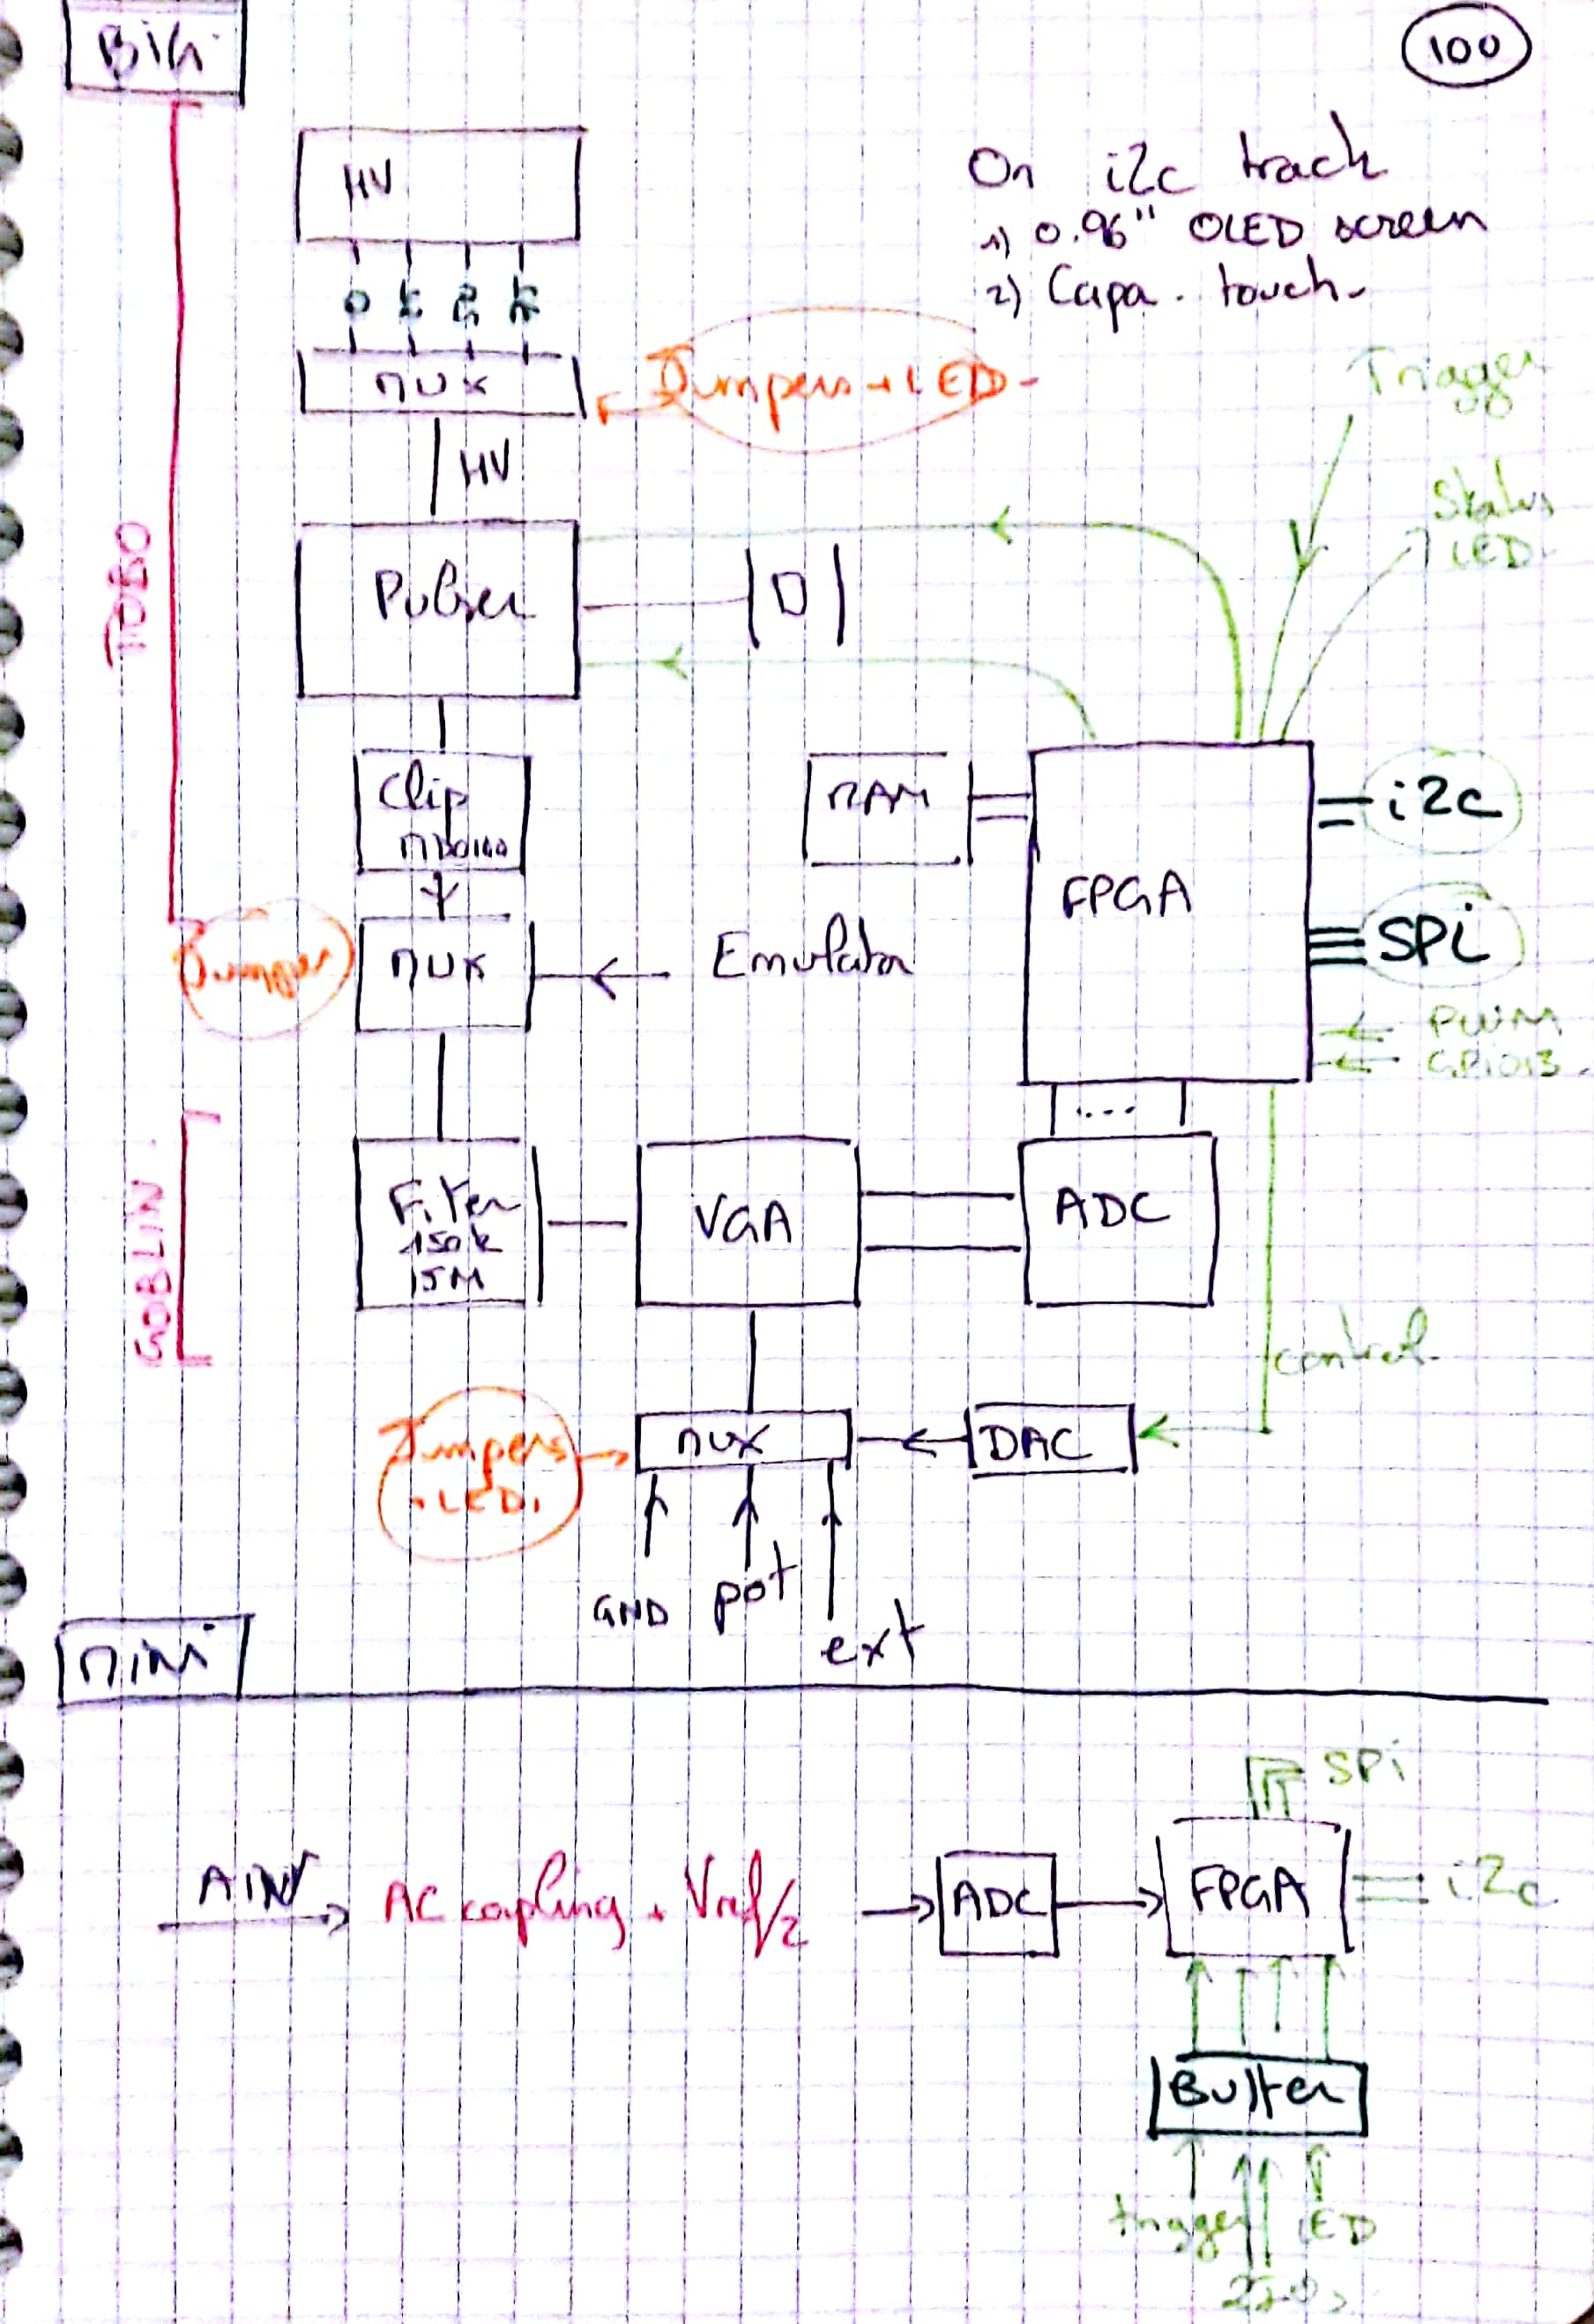 BiG
100
On i2c track
1) 0.96" OLED screen
2) Capa. touch.
HV
MUX
Jumpers + LED
HV
Trigger
Status
LED
TOBO
Pulser
Clip
RAM
FPGA
i2c
SPi
PWM
GPiO13
Jumper
MUX
Emulator
GOBLIN
Filter
150k
15M
VGA
ADC
control
Jumpers
+ LED
MUX
DAC
GND
pot
ext
Mini
SPi
AIN
AC coupling + Vref/2
ADC
FPGA
i2c
Buffer
trigger
LED